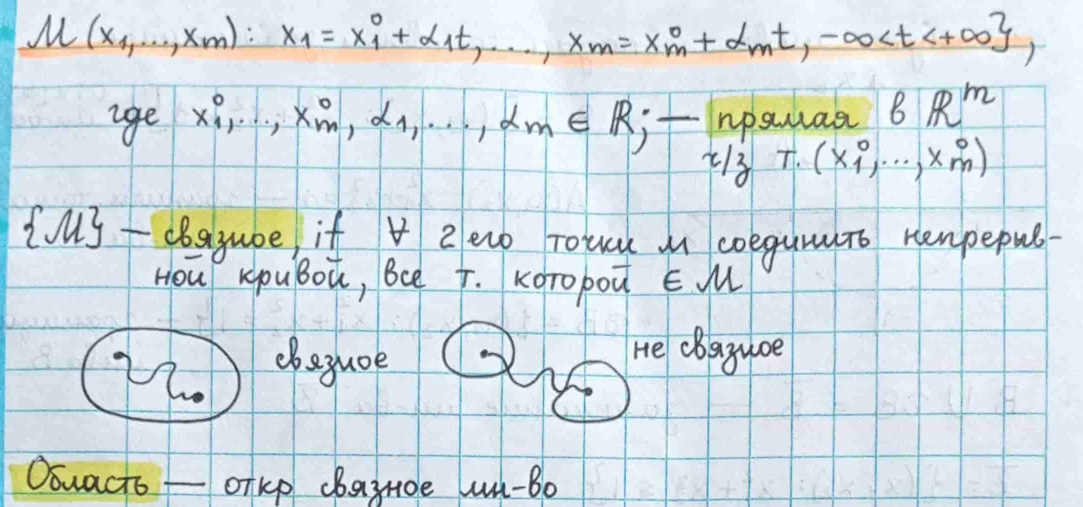 M(x₁,...,xₘ): x₁ = x₁⁰ + α₁t, ..., xₘ = xₘ⁰ + αₘt, -∞<t<+∞},
где x₁⁰,..., xₘ⁰, α₁,..., αₘ ∈ ℝ; — прямая в ℝᵐ
ч/з т. (x₁⁰,...,xₘ⁰)
{M} — связное, if ∀ 2 его точки м соединить непрерыв-
ной кривой, все т. которой ∈ M
связное
не связное
Область — откр связное мн-во